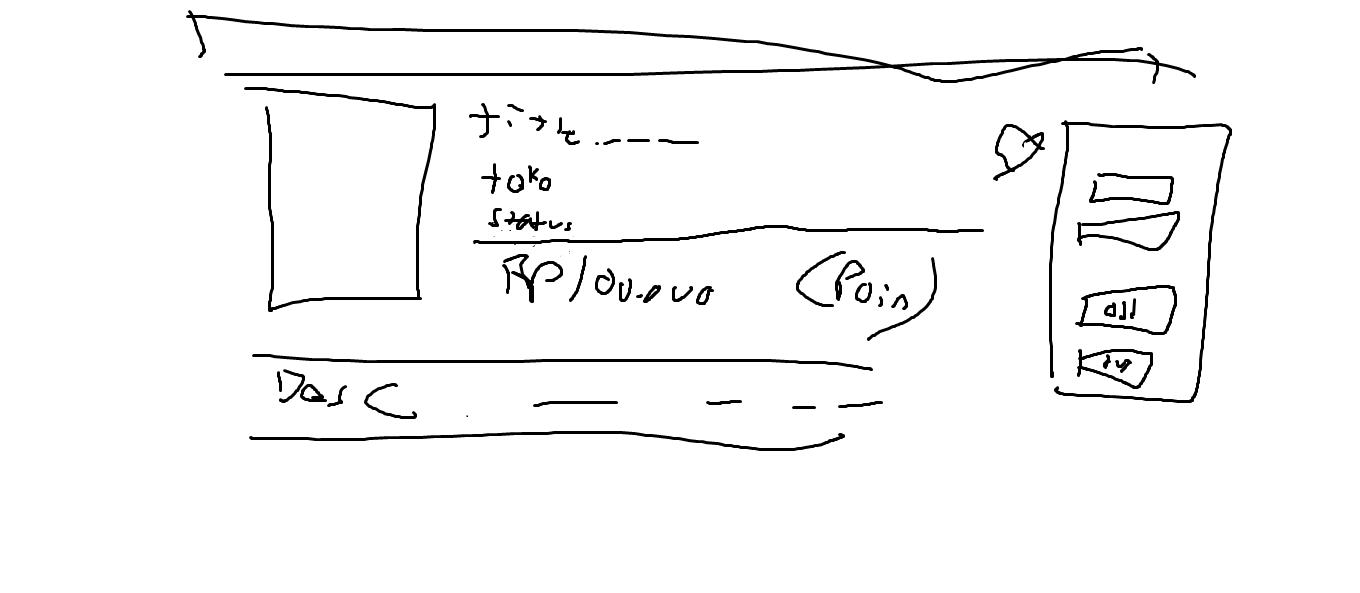 title .----
toko
status
RP 100.000 (Poin)
Desc
all